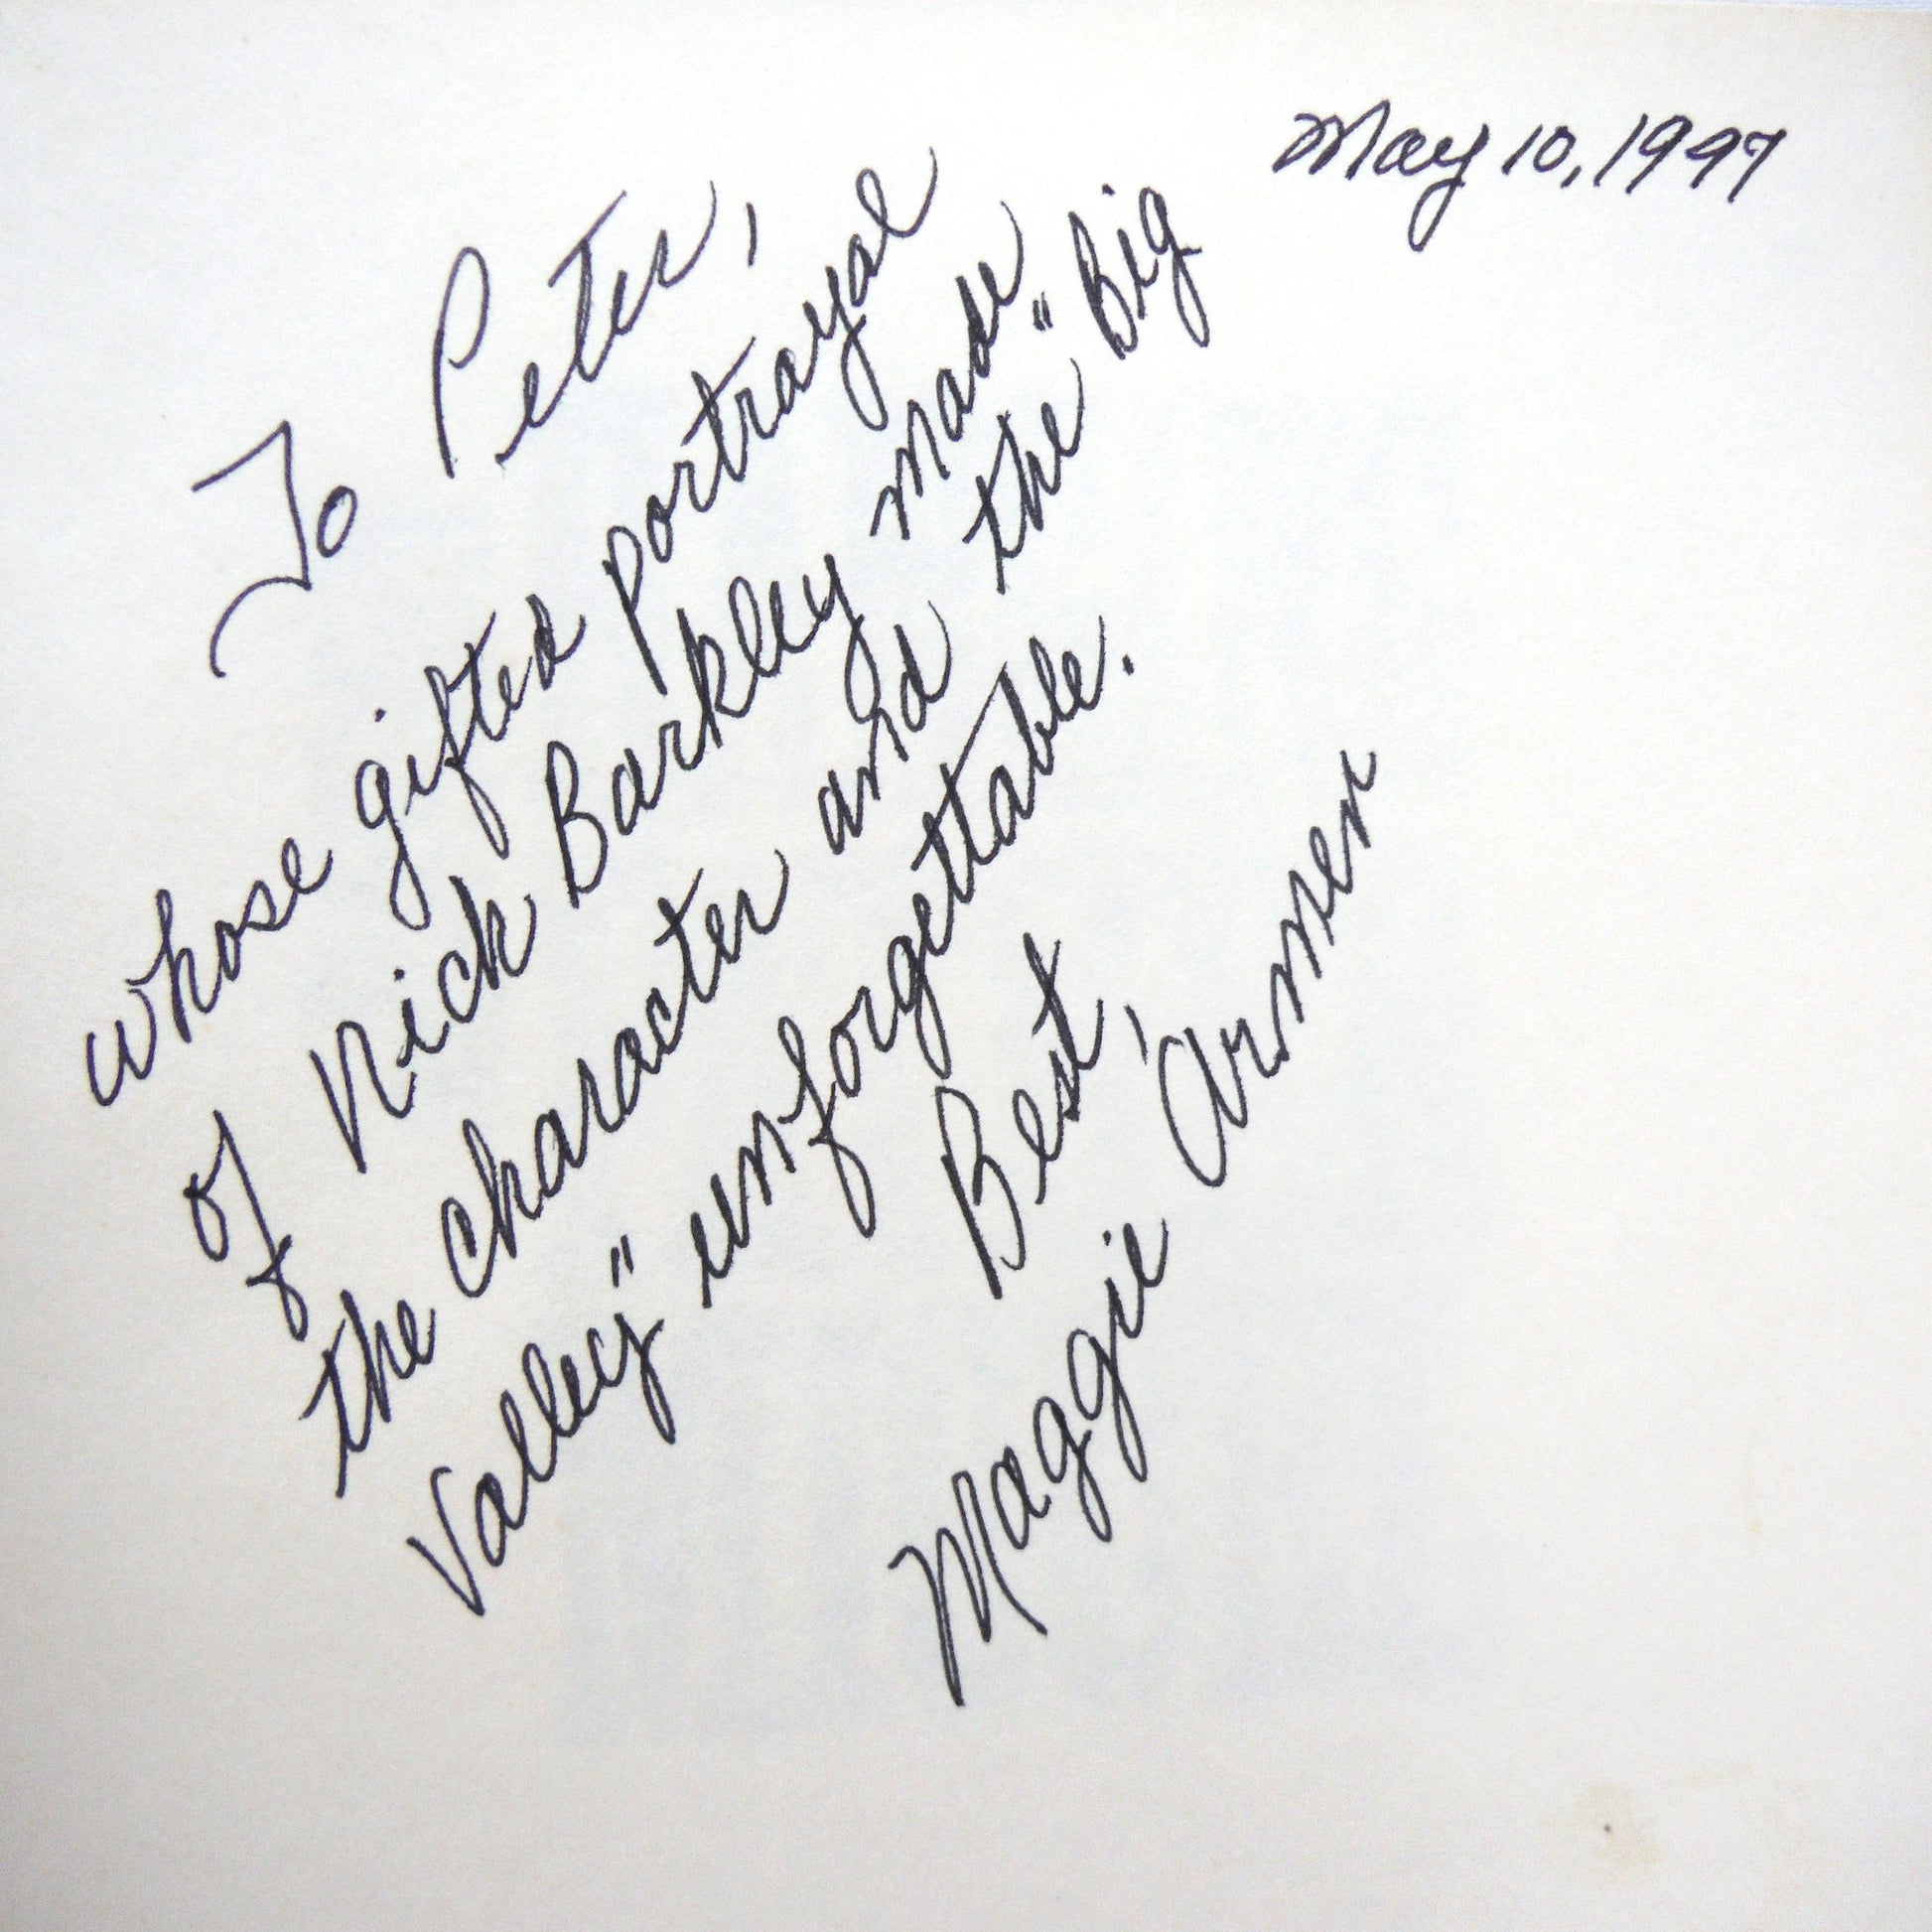 May 10, 1997
To Peter,
whose gifted portrayal
of Nick Barkley made
the character and the "Big
Valley" unforgettable.
Best,
Maggie Armen